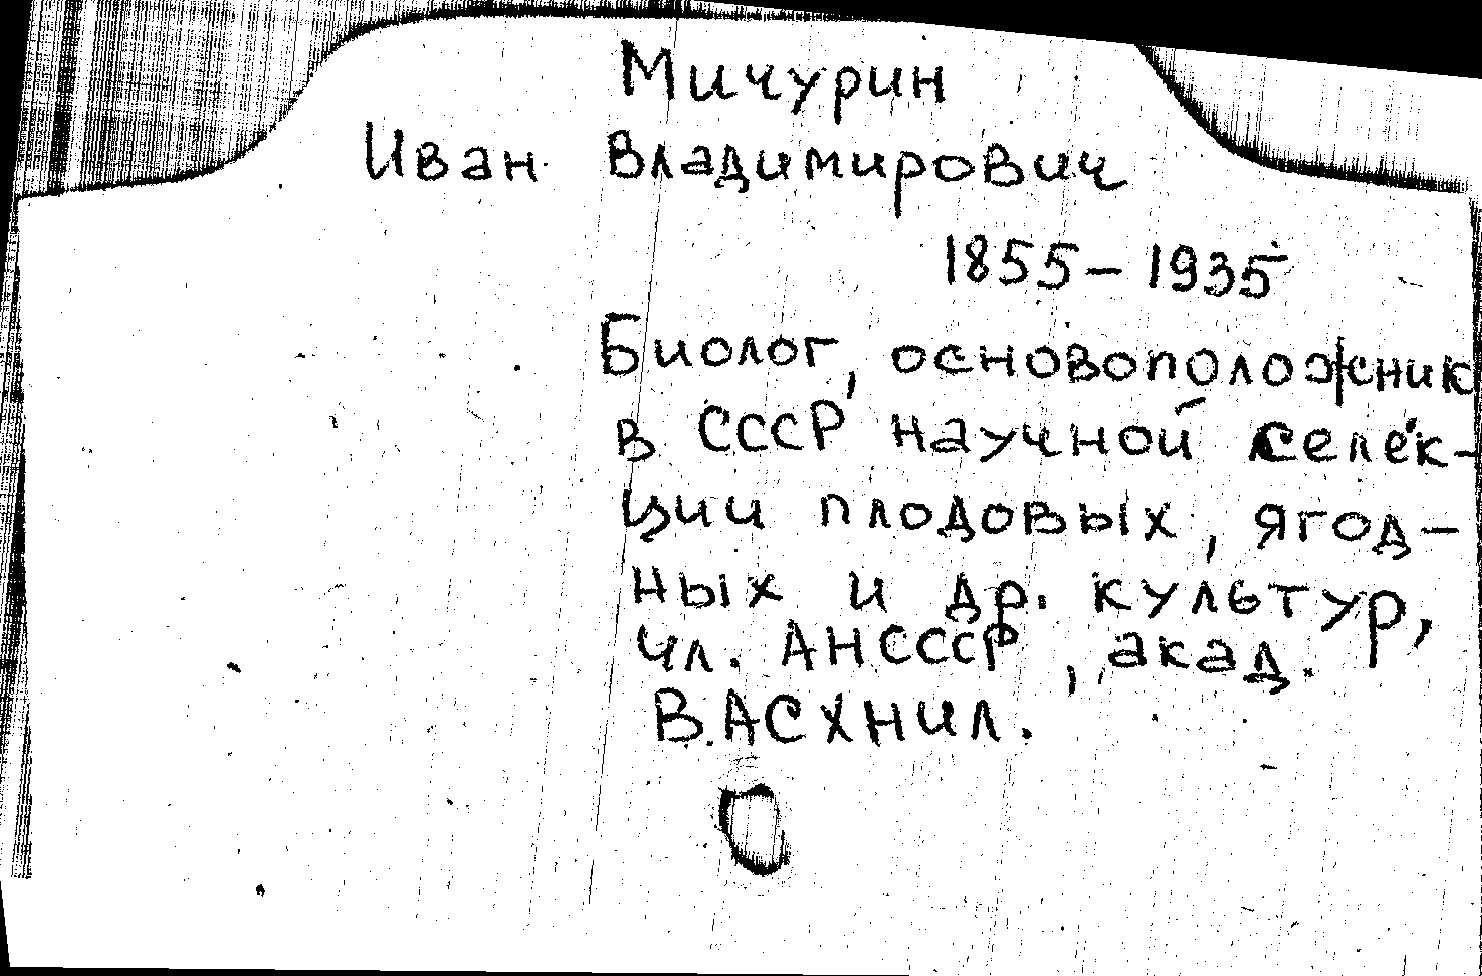 Мичурин
Иван Владимирович
1855-1935
Биолог, основоположник
в СССР научной селек-
ции плодовых, ягод-
ных и др. культур,
чл. АНСССР, акад.
ВАСХНИЛ.